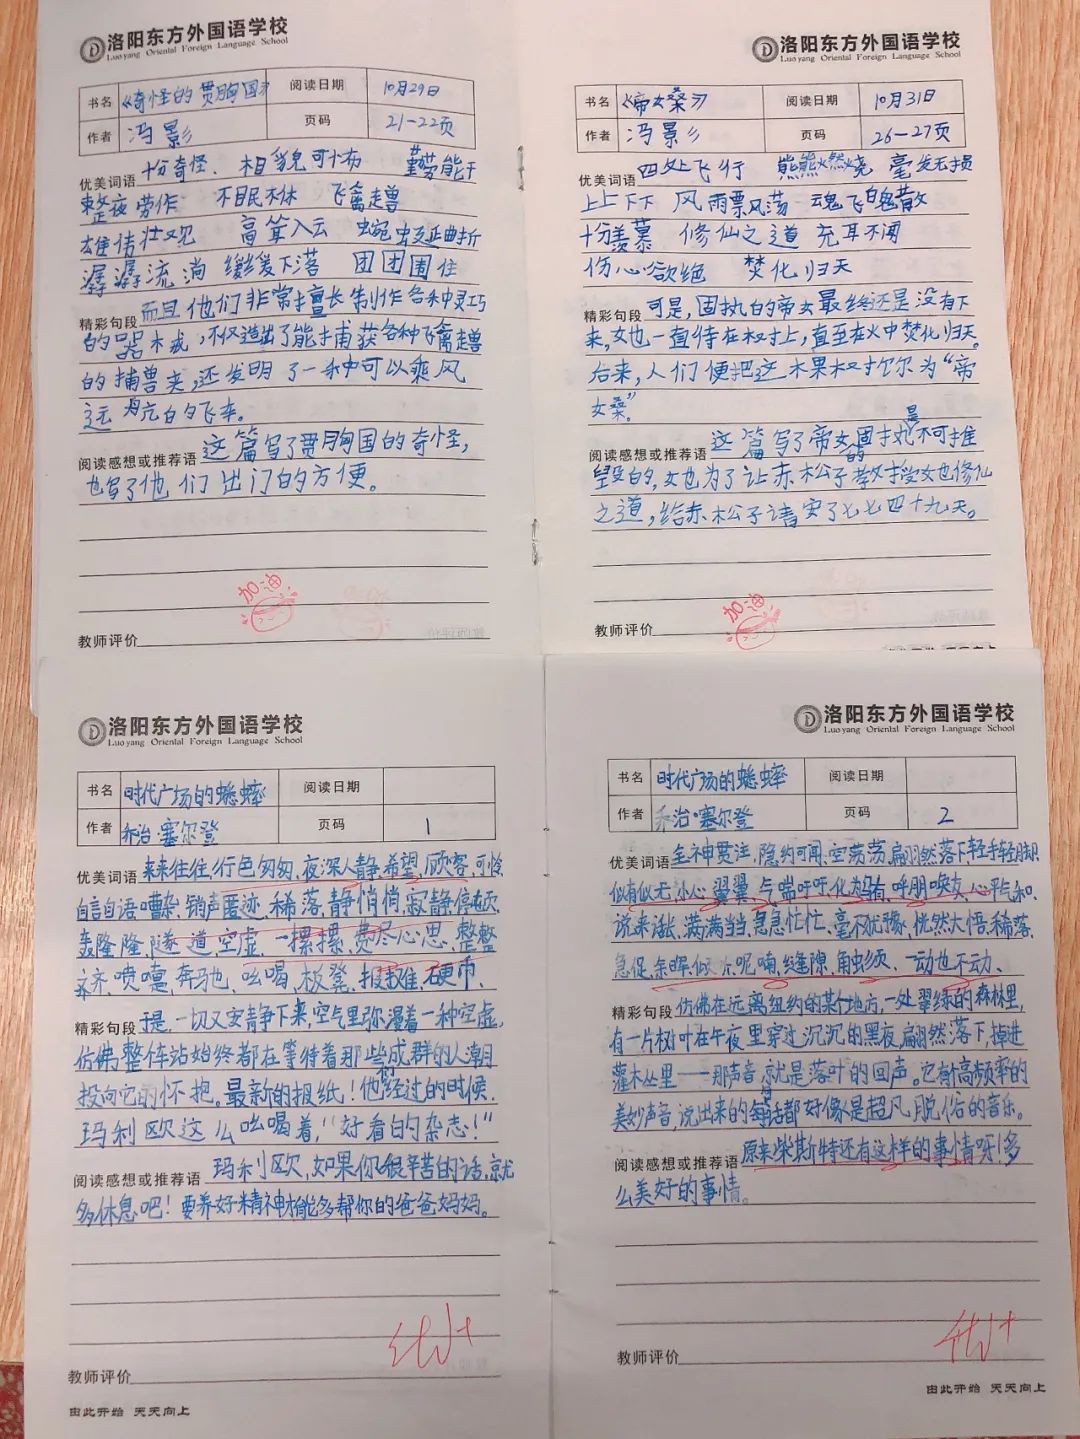 洛阳东方外国语学校
Luoyang Oriental Foreign Language School
书名 《奇怪的贯胸国》 阅读日期 10月29日
作者 冯影彡 页码 21-22页
优美词语 十分奇怪、相貌可怖 勤劳能干
整夜劳作 不眠不休 飞禽走兽
雄伟壮观 高耸入云 蜿蜒曲折
潺潺流淌 缓缓下落 团团围住
精彩句段 而且他们非常擅长制作各种灵巧
的器械,不仅造出了能捕获各种飞禽走兽
的捕兽夹,还发明了一种可以乘风
远航的飞车。
阅读感想或推荐语 这篇写了贯胸国的奇怪,
也写了他们出门的方便。
加油
教师评价
洛阳东方外国语学校
Luoyang Oriental Foreign Language School
书名 《帝女桑》 阅读日期 10月31日
作者 冯影彡 页码 26-27页
优美词语 四处飞行 熊熊燃烧 毫发无损
上上下下 风雨飘荡 魂飞魄散
十分羡慕 修仙之道 充耳不闻
伤心欲绝 焚化归天
精彩句段 可是,固执的帝女最终还是没有下
来,她一直待在树上,直至在火中焚化归天。
后来,人们便把这棵树称为“帝
女桑”。
阅读感想或推荐语 这篇写了帝女的固执是不可推
毁的,她为了让赤松子教授她修仙
之道,给赤松子请安了七七四十九天。
加油
教师评价
洛阳东方外国语学校
Luoyang Oriental Foreign Language School
书名 时代广场的蟋蟀 阅读日期
作者 乔治·塞尔登 页码 1
优美词语 来来往往、行色匆匆、夜深人静、希望、顾客、可怜
自言自语、嘈杂、销声匿迹、稀落、静悄悄、寂静、停顿、
轰隆隆、隧道、空虚、一摞摞、费尽心思、整整
齐齐、喷嚏、奔驰、吆喝、板凳、报摊、硬币、
精彩句段 于是,一切又安静下来,空气里弥漫着一种空虚,
仿佛整个车站始终都在等待着那些成群的人潮
投向它的怀抱。最新的报纸!他们经过的时候,
玛利欧这么吆喝着,“好看的杂志!”
阅读感想或推荐语 玛利欧,如果你很辛苦的话,就
多休息吧!要养好精神才能多帮你的爸爸妈妈。
优+
教师评价
由此开始 天天向上
洛阳东方外国语学校
Luoyang Oriental Foreign Language School
书名 时代广场的蟋蟀 阅读日期
作者 乔治·塞尔登 页码 2
优美词语 全神贯注、隐约可闻、空荡荡、翩然落下、轻手轻脚、
似有似无、小心翼翼、气喘吁吁、化为乌有、呼朋唤友、心平气和、
说来话长、满满当当、急急忙忙、毫不犹豫、恍然大悟、稀落、
急促、余晖、呢喃、缝隙、触须、一动也不动、
精彩句段 仿佛在远离纽约的某个地方,一处翠绿的森林里,
有一片树叶在午夜里穿过沉沉的黑夜,翩然落下,掉进
灌木丛里——那声音,就是落叶的回声。它有个高频率的
美妙声音,说出来的每句话都好像是超凡脱俗的音乐。
阅读感想或推荐语 原来柴斯特还有这样的事情呀!多
么美好的事情。
优+
教师评价
由此开始 天天向上